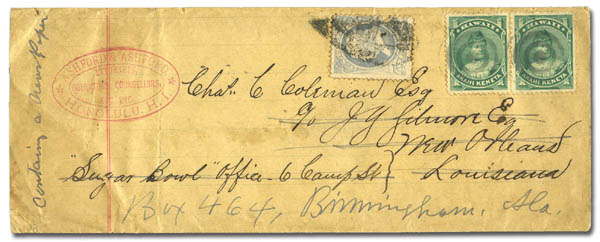 Containing a News Paper
ASHFORD & ASHFORD
ATTORNEYS,
SOLICITORS, COUNSELLORS,
ETC.
HONOLULU, H.I.
HAWAII
HAWAII
AKAHI KENETA
AKAHI KENETA
Chas. C Coleman Esq
c/o J G Gilmore Esq
New Orleans
"Sugar Bowl" Office - 6 Camp St } Louisiana
Box 464, Birmingham, Ala.